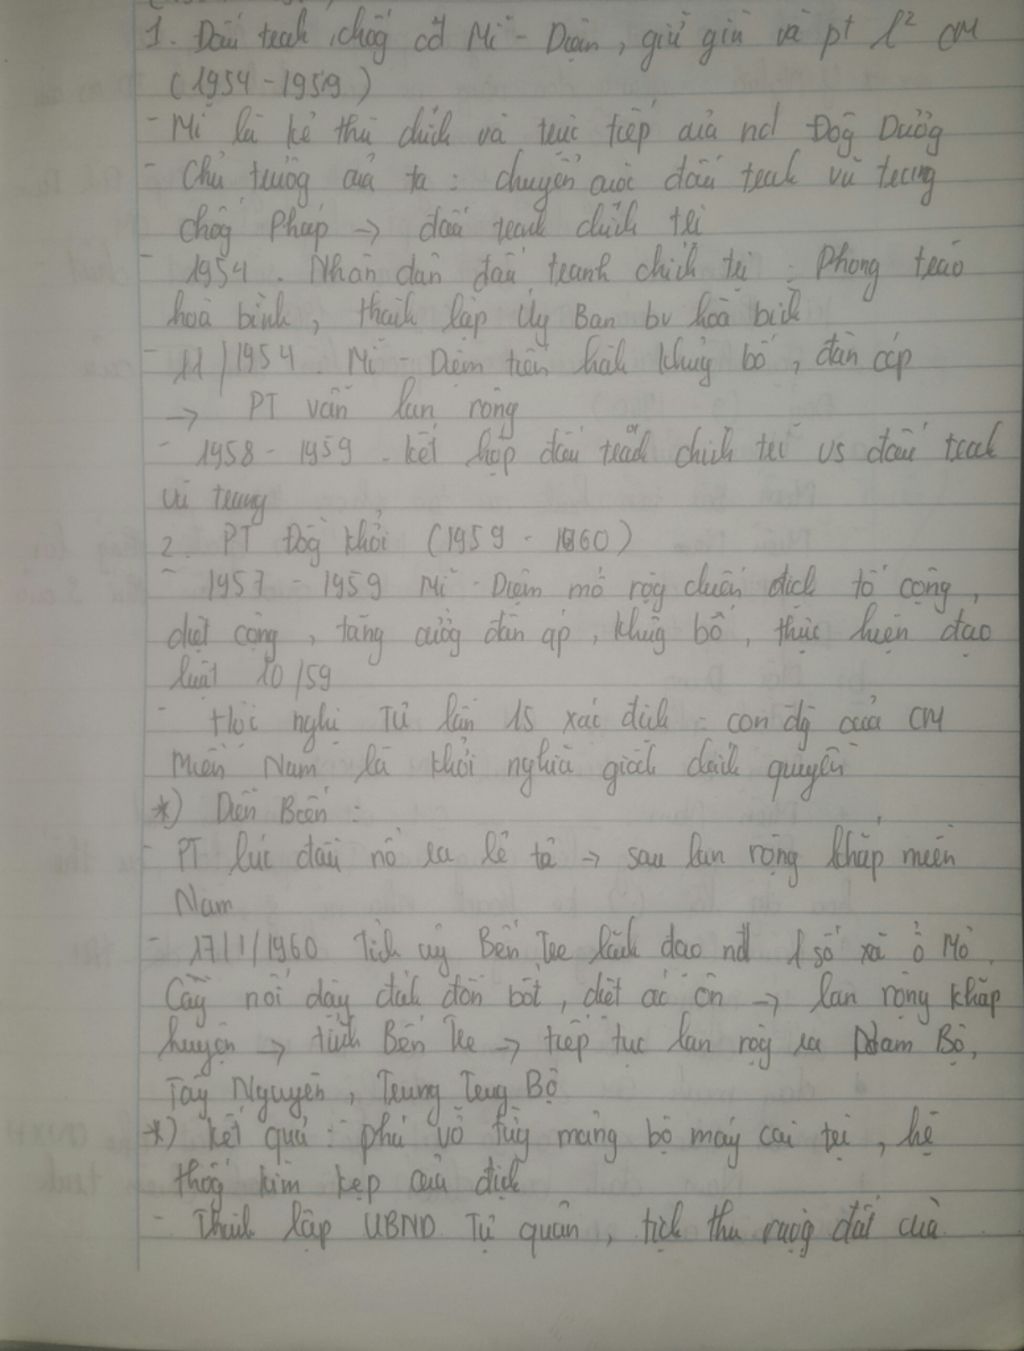 1. Đấu trah, chốg cđ Mĩ - Diệm, giữ gìn và pt l² CM
(1954 - 1959)
- Mĩ là kẻ thù chíh và trực tiếp của nd Đôg Dươg
- Chủ trươg của ta : chuyển cuộc đấu trah vũ trang
chốg Pháp → đấu trah chíh trị
- 1954 . Nhân dân đấu tranh chíh trị : Phong trào
hoà bình, thàh lập Ủy Ban bv hoà bìh
- 11/1954 Mĩ - Diệm tiến hàh khủg bố, đàn áp
→ PT vẫn lan rộng
- 1958 - 1959 . kết hợp đấu trah chíh trị vs đấu trah
vũ trang
2. PT Đồg khởi (1959 - 1960)
- 1957 - 1959 Mĩ - Diệm mở rộg chiến dịch tố cộng,
diệt cộng, tăng cườg đàn áp, khủg bố, thực hiện đạo
luật 10/59
- Hội nghị TƯ lần 15 xác địh : con đg của CM
Miền Nam là khởi nghĩa giàh chíh quyền
*) Diễn Biến :
- PT lúc đầu nổ ra lẻ tẻ → sau lan rộng khắp miền
Nam
- 17/1/1960 Tỉh ủy Bến Tre lãh đạo nd 1 số xã ở Mỏ
Cày nổi dậy đáh đồn bốt, diệt ác ôn → lan rộng khắp
huyện → tỉh Bến Tre → tiếp tục lan rộg ra Nam Bộ,
Tây Nguyên, Trung Trug Bộ
*) Kết quả : phá vỡ từg mảng bộ máy cai trị, hệ
thốg kìm kẹp của địch
- Thàh lập UBND Tự quản, tịch thu ruộg đất của